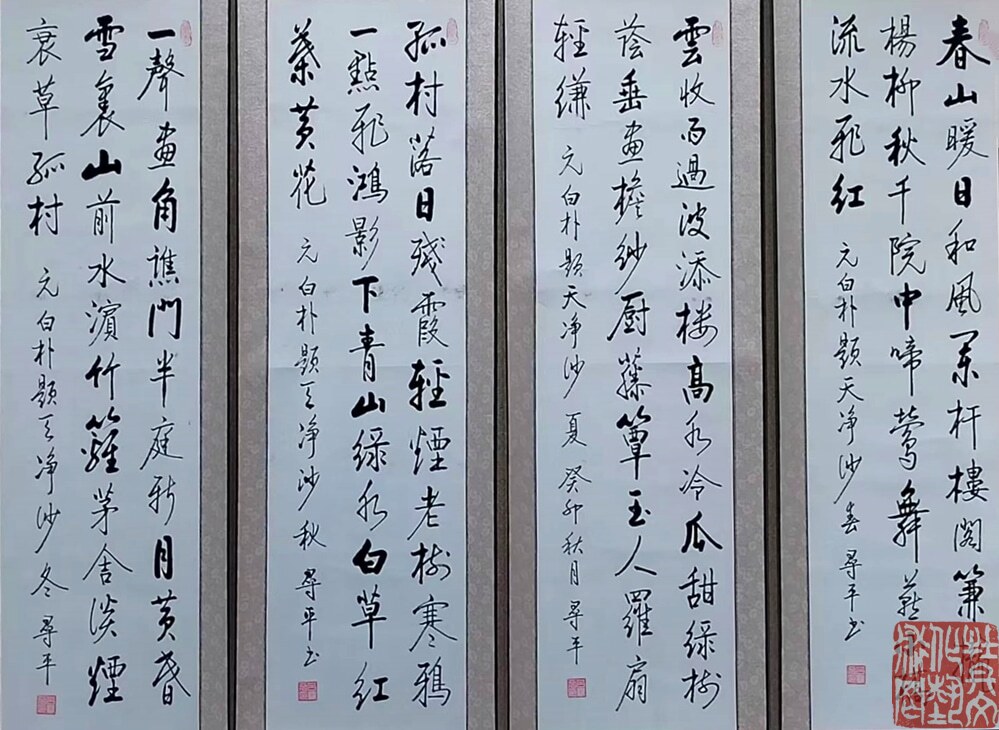 春山暖日和風闌杆樓閣簾
楊柳秋千院中啼鶯舞燕
流水飛紅 元白朴題天净沙春 尋平书
雲收雨過波添楼高水冷瓜甜綠树
蔭垂畫檐紗厨藤簟玉人羅扇
輕縑 元白朴題天净沙夏 癸卯秋月 尋平
孤村落日殘霞輕煙老树寒鴉
一點飛鴻影下青山綠水白草红
葉黄花 元白朴題天净沙秋 尋平书
一聲畫角譙門半庭新月黄昏
雪裏山前水濱竹籬茅舍淡煙
衰草孤村 元白朴題天净沙冬 尋平